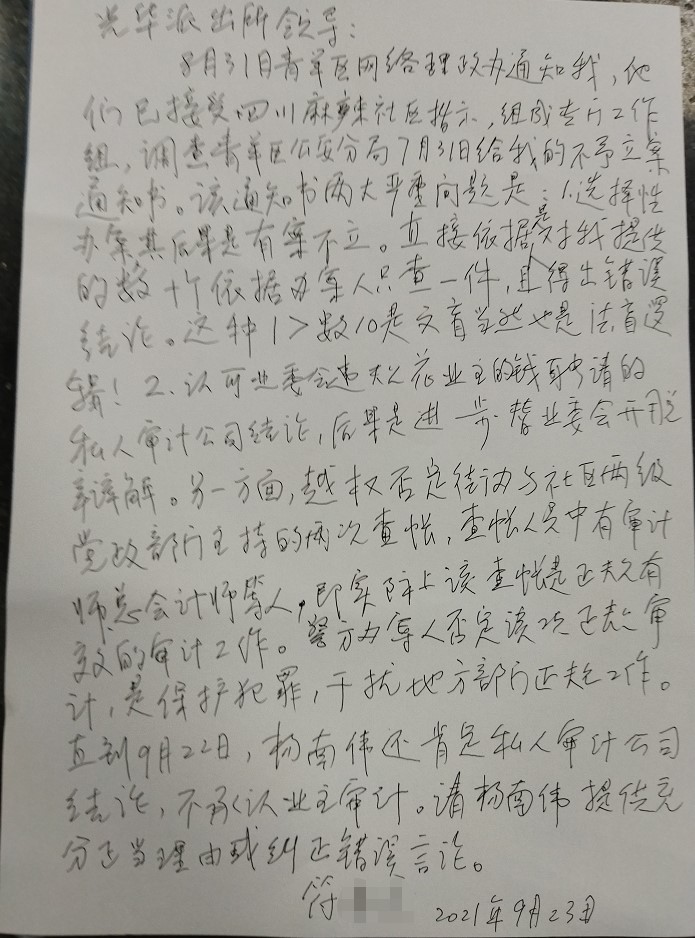 光华派出所领导:
8月31日青羊区网络理政办通知我,他
们已接受四川麻辣社区指示,组成专门工作
组,调查青羊区公安分局7月31日给我的不予立案
通知书。该通知书两大严重问题是:1.选择性
办案其后果是有案不立。直接依据是对我提供
的数十个依据办案人只查一件,且得出错误
结论。这种1>数10是文盲当然也是法盲逻
辑!2.认可业委会违法花业主的钱聘请的
私人审计公司结论,后果是进一步替业委会开脱
辩解。另一方面,越权否定街办与社区两级
党政部门主持的两次查帐,查帐人员中有审计
师总会计师等人,即实际上该查帐是正规有
效的审计工作。警方办案人否定该次正规审
计,是保护犯罪,干扰地方部门正规工作。
直到9月22日,杨南伟还肯定私人审计公司
结论,不承认业主审计。请杨南伟提供充
分正当理由或纠正错误言论。
符
2021年9月23日